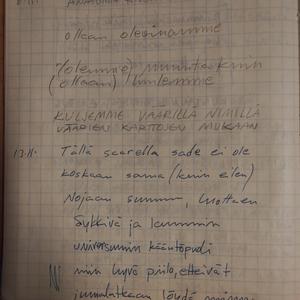 ollaan olevinamme
(olemme) muutakuin
(ollaan) luulemme
KULJEMME VÄÄRILLÄ NIMILLÄ
VÄÄRIEN KARTTOJEN MUKAAN
13.11. Tällä saarella sade ei ole
koskaan sama (kuin eilen)
Nojaan summ, luottaen
Sykkivä ja lämmin
universumin kääntöpuoli
niin hyvä piilo, etteivät
jumalatkaan löydä